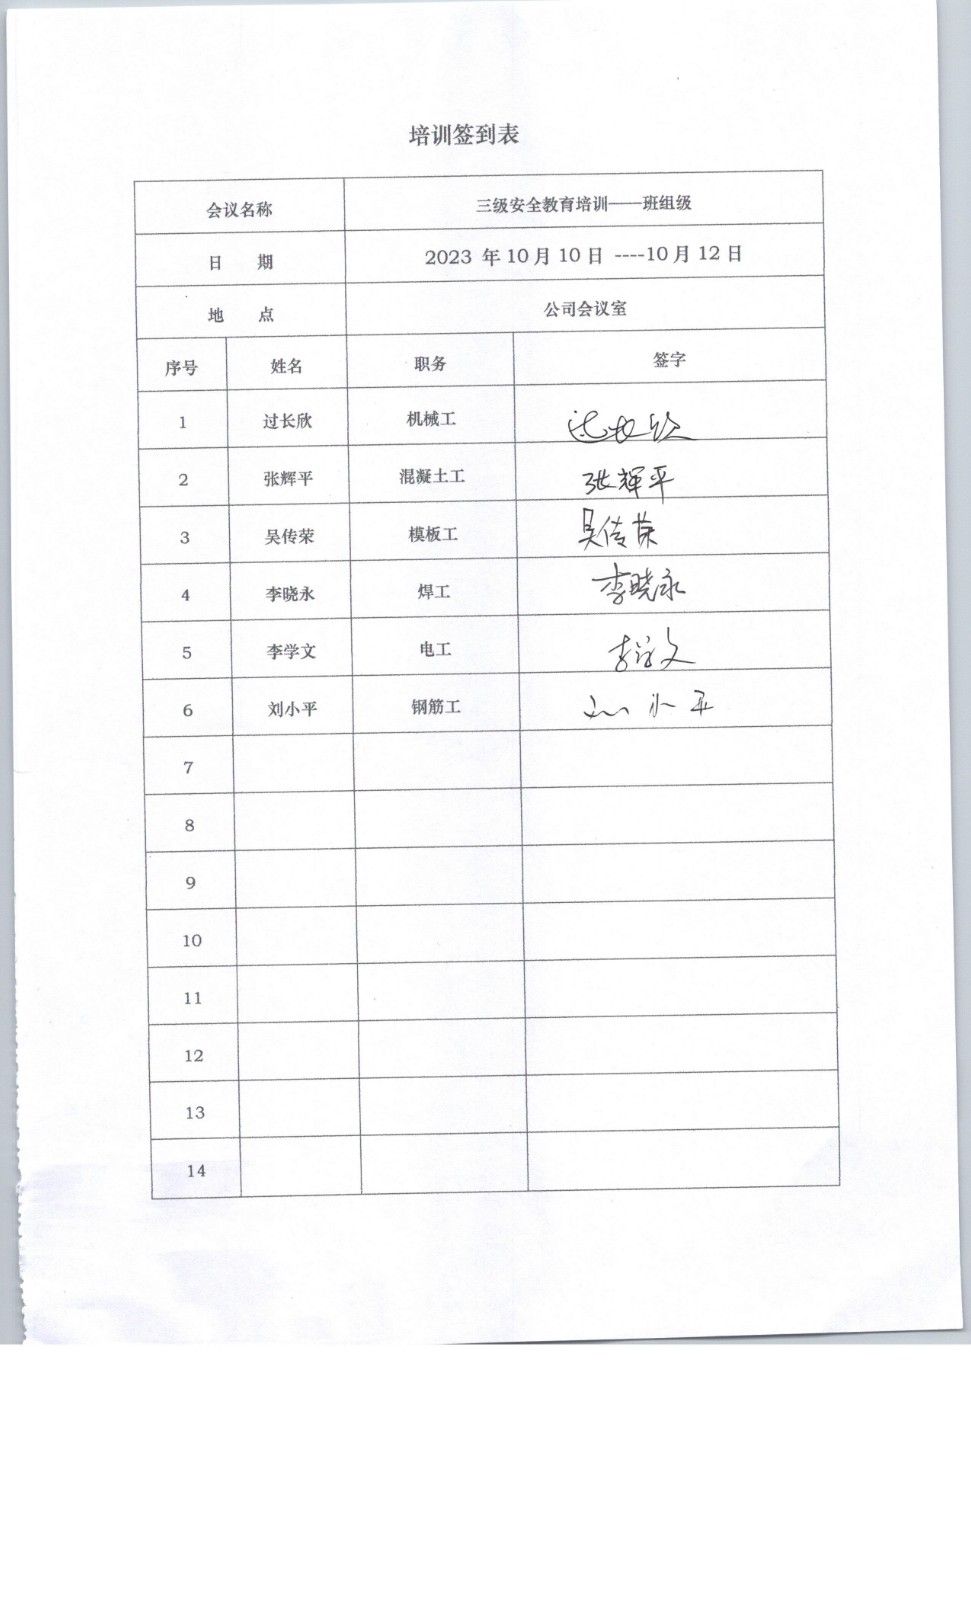 培训签到表
会议名称 三级安全教育培训——班组级
日 期 2023 年 10 月 10 日 ----10 月 12 日
地 点 公司会议室
序号 姓名 职务 签字
1 过长欣 机械工 过长欣
2 张辉平 混凝土工 张辉平
3 吴传荣 模板工 吴传荣
4 李晓永 焊工 李晓永
5 李学文 电工 李学文
6 刘小平 钢筋工 刘小平
7
8
9
10
11
12
13
14